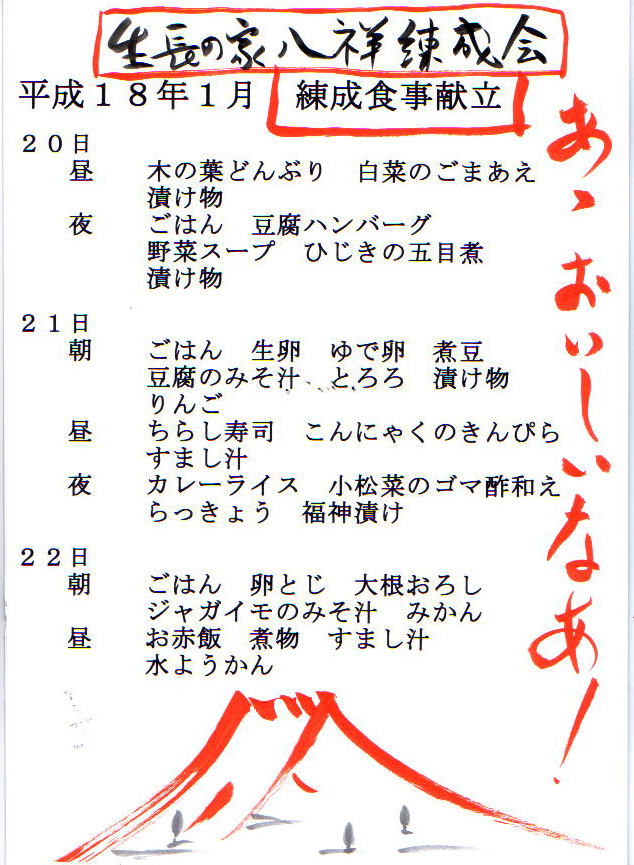 生長の家八祥練成会
平成１８年１月　練成食事献立
２０日
昼　木の葉どんぶり　白菜のごまあえ
漬け物
夜　ごはん　豆腐ハンバーグ
野菜スープ　ひじきの五目煮
漬け物
２１日
朝　ごはん　生卵　ゆで卵　煮豆
豆腐のみそ汁　とろろ　漬け物
りんご
昼　ちらし寿司　こんにゃくのきんぴら
すまし汁
夜　カレーライス　小松菜のゴマ酢和え
らっきょう　福神漬け
２２日
朝　ごはん　卵とじ　大根おろし
ジャガイモのみそ汁　みかん
昼　お赤飯　煮物　すまし汁
水ようかん
あゝおいしいなあ！